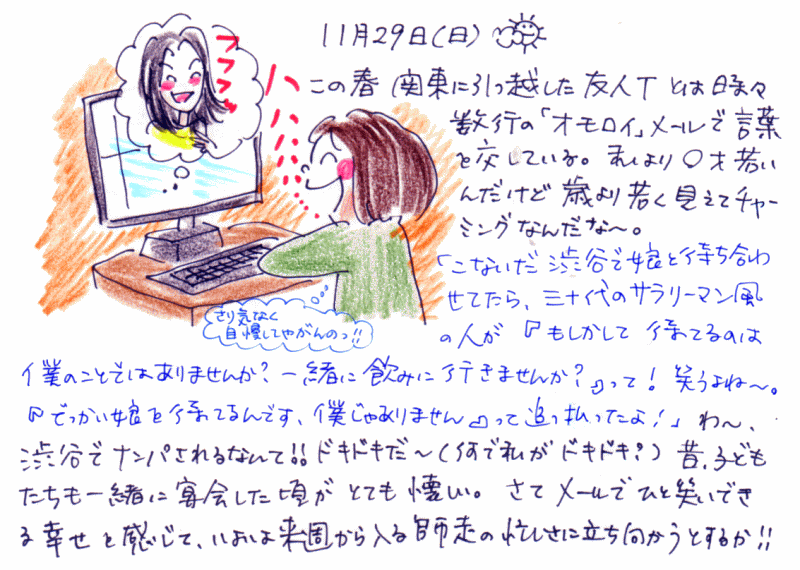 11月29日(日)
この春 関東に引っ越した 友人T とは 時々
数行の「オモロイ」メールで 言葉
を交している。私より〇才若い
んだけど 歳より若く見えてチャー
ミングなんだな〜。
「こないだ 渋谷で娘と待ち合わ
せてたら、三十代のサラリーマン風
の人が『もしかして 待ってるのは
僕のことではありませんか?一緒に飲みに行きませんか?』って!笑うよね〜。
『でっかい娘を待ってるんです、僕じゃありません』って追っ払ったよ!」わ〜、
渋谷でナンパされるなんて!!ドキドキだ〜(何で私がドキドキ?)昔、子ども
たちも一緒に宴会した頃が とても懐しい。さて メールで ひと笑いでき
る幸せを感じて、いよいよ来週から入る師走の忙しさに立ち向かうとするか!!
ハハハ
さり気なく
自慢してやがんのっ!!